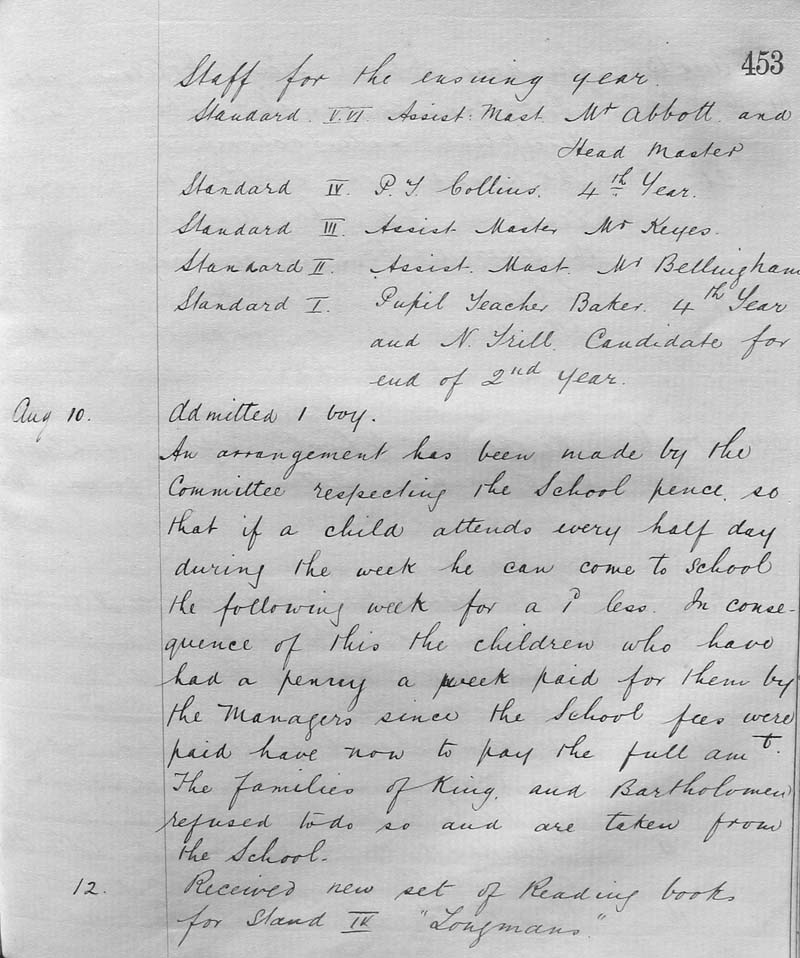 453
Staff for the ensuing year.
Standard. V.VI. Assist: Mast. Mr Abbott. and
Head Master
Standard IV. P.T. Collins. 4th Year.
Standard III. Assist Master Mr Keyes.
Standard II. Assist. Mast. Mr Bellingham
Standard I. Pupil Teacher Baker. 4th Year
and N. Trill. Candidate for
end of 2nd year.
Aug 10. Admitted 1 boy.
An arrangement has been made by the
Committee respecting the School pence, so
that if a child attends every half day
during the week he can come to school
the following week for a 1d less. In conse-
quence of this the children who have
had a penny a week paid for them by
the Managers since the School fees were
paid have now to pay the full amt.
The families of King, and Bartholomew
refused to do so and are taken from
the School.
12. Received new set of Reading books
for Stand IV "Longmans."